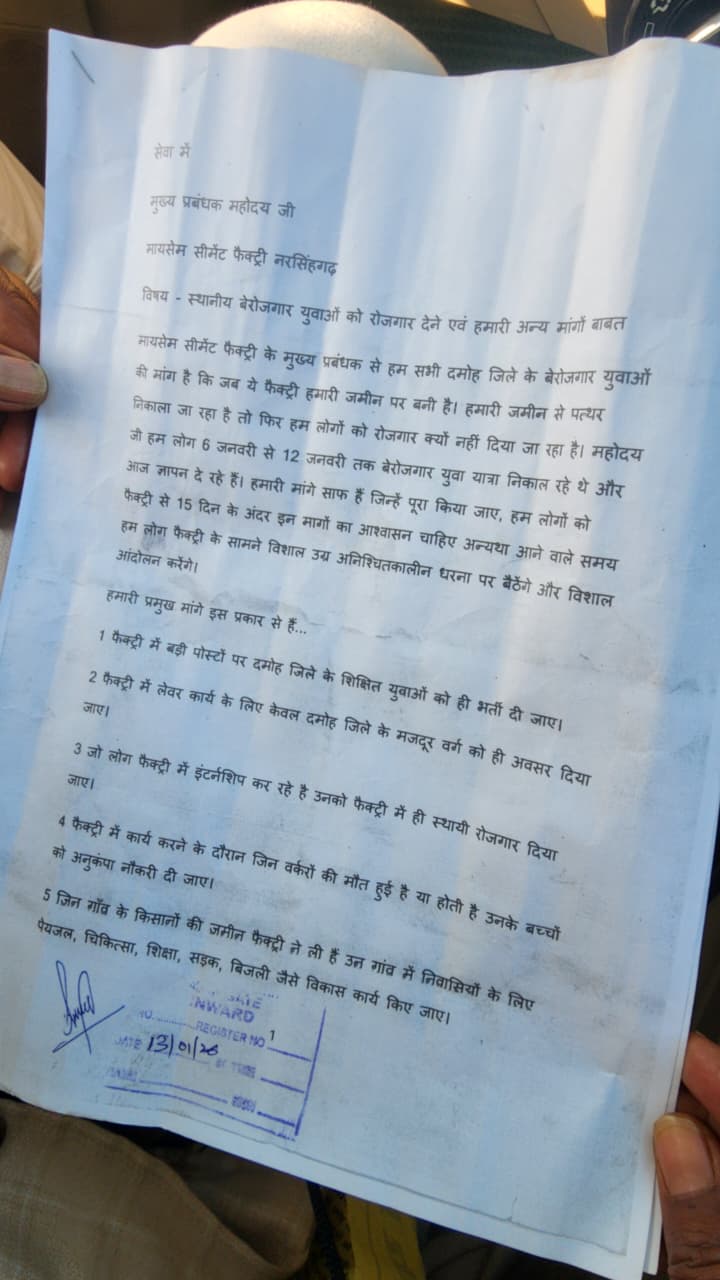 सेवा में
मुख्य प्रबंधक महोदय जी
मायसेम सीमेंट फैक्ट्री नरसिंहगढ़
विषय - स्थानीय बेरोजगार युवाओं को रोजगार देने एवं हमारी अन्य मांगों बाबत
मायसेम सीमेंट फैक्ट्री के मुख्य प्रबंधक से हम सभी दमोह जिले के बेरोजगार युवाओं
की मांग है कि जब ये फैक्ट्री हमारी जमीन पर बनी है। हमारी जमीन से पत्थर
निकाला जा रहा है तो फिर हम लोगों को रोजगार क्यों नहीं दिया जा रहा है। महोदय
जी हम लोग 6 जनवरी से 12 जनवरी तक बेरोजगार युवा यात्रा निकाल रहे थे और
आज ज्ञापन दे रहे हैं। हमारी मांगे साफ हैं जिन्हें पूरा किया जाए, हम लोगों को
फैक्ट्री से 15 दिन के अंदर इन मागों का आश्वासन चाहिए अन्यथा आने वाले समय
हम लोग फैक्ट्री के सामने विशाल उग्र अनिश्चितकालीन धरना पर बैठेंगे और विशाल
आंदोलन करेंगे।
हमारी प्रमुख मांगे इस प्रकार से हैं...
1 फैक्ट्री में बड़ी पोस्टों पर दमोह जिले के शिक्षित युवाओं को ही भर्ती दी जाए।
2 फैक्ट्री में लेवर कार्य के लिए केवल दमोह जिले के मजदूर वर्ग को ही अवसर दिया
जाए।
3 जो लोग फैक्ट्री में इंटर्नशिप कर रहे है उनको फैक्ट्री में ही स्थायी रोजगार दिया
जाए।
4 फैक्ट्री में कार्य करने के दौरान जिन वर्करों की मौत हुई है या होती है उनके बच्चों
को अनुकंपा नौकरी दी जाए।
5 जिन गाँव के किसानों की जमीन फैक्ट्री ने ली हैं उन गांव में निवासियों के लिए
पेयजल, चिकित्सा, शिक्षा, सड़क, बिजली जैसे विकास कार्य किए जाए।
GATE
INWARD
REGISTER NO 1
DATE 13/01/26